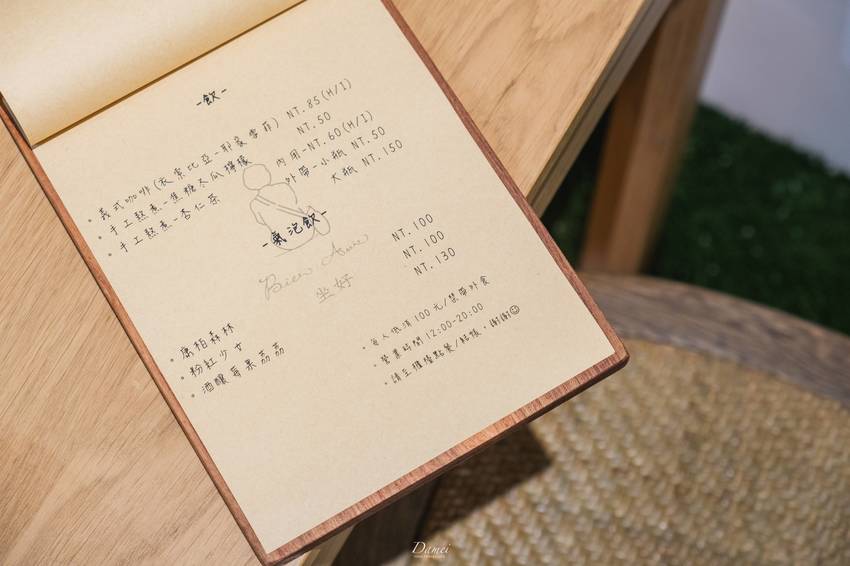 -飲-
• 義式咖啡(衣索比亞-耶家雪菲) NT.85(H/I)
• 手工熬煮-焦糖冬瓜檸檬 NT.50
• 手工熬煮-杏仁茶 內用-NT.60(H/I)
外帶-小瓶 NT.50
大瓶 NT.150
-氣泡飲-
Bien Assise
坐好
• 康柏森林 NT.100
• 粉紅少女 NT.100
• 酒釀莓果荔荔 NT.130
• 每人低消100元/禁帶外食
• 營業時間 12:00-20:00
• 請至櫃檯點餐/結帳,謝謝☺
Damei